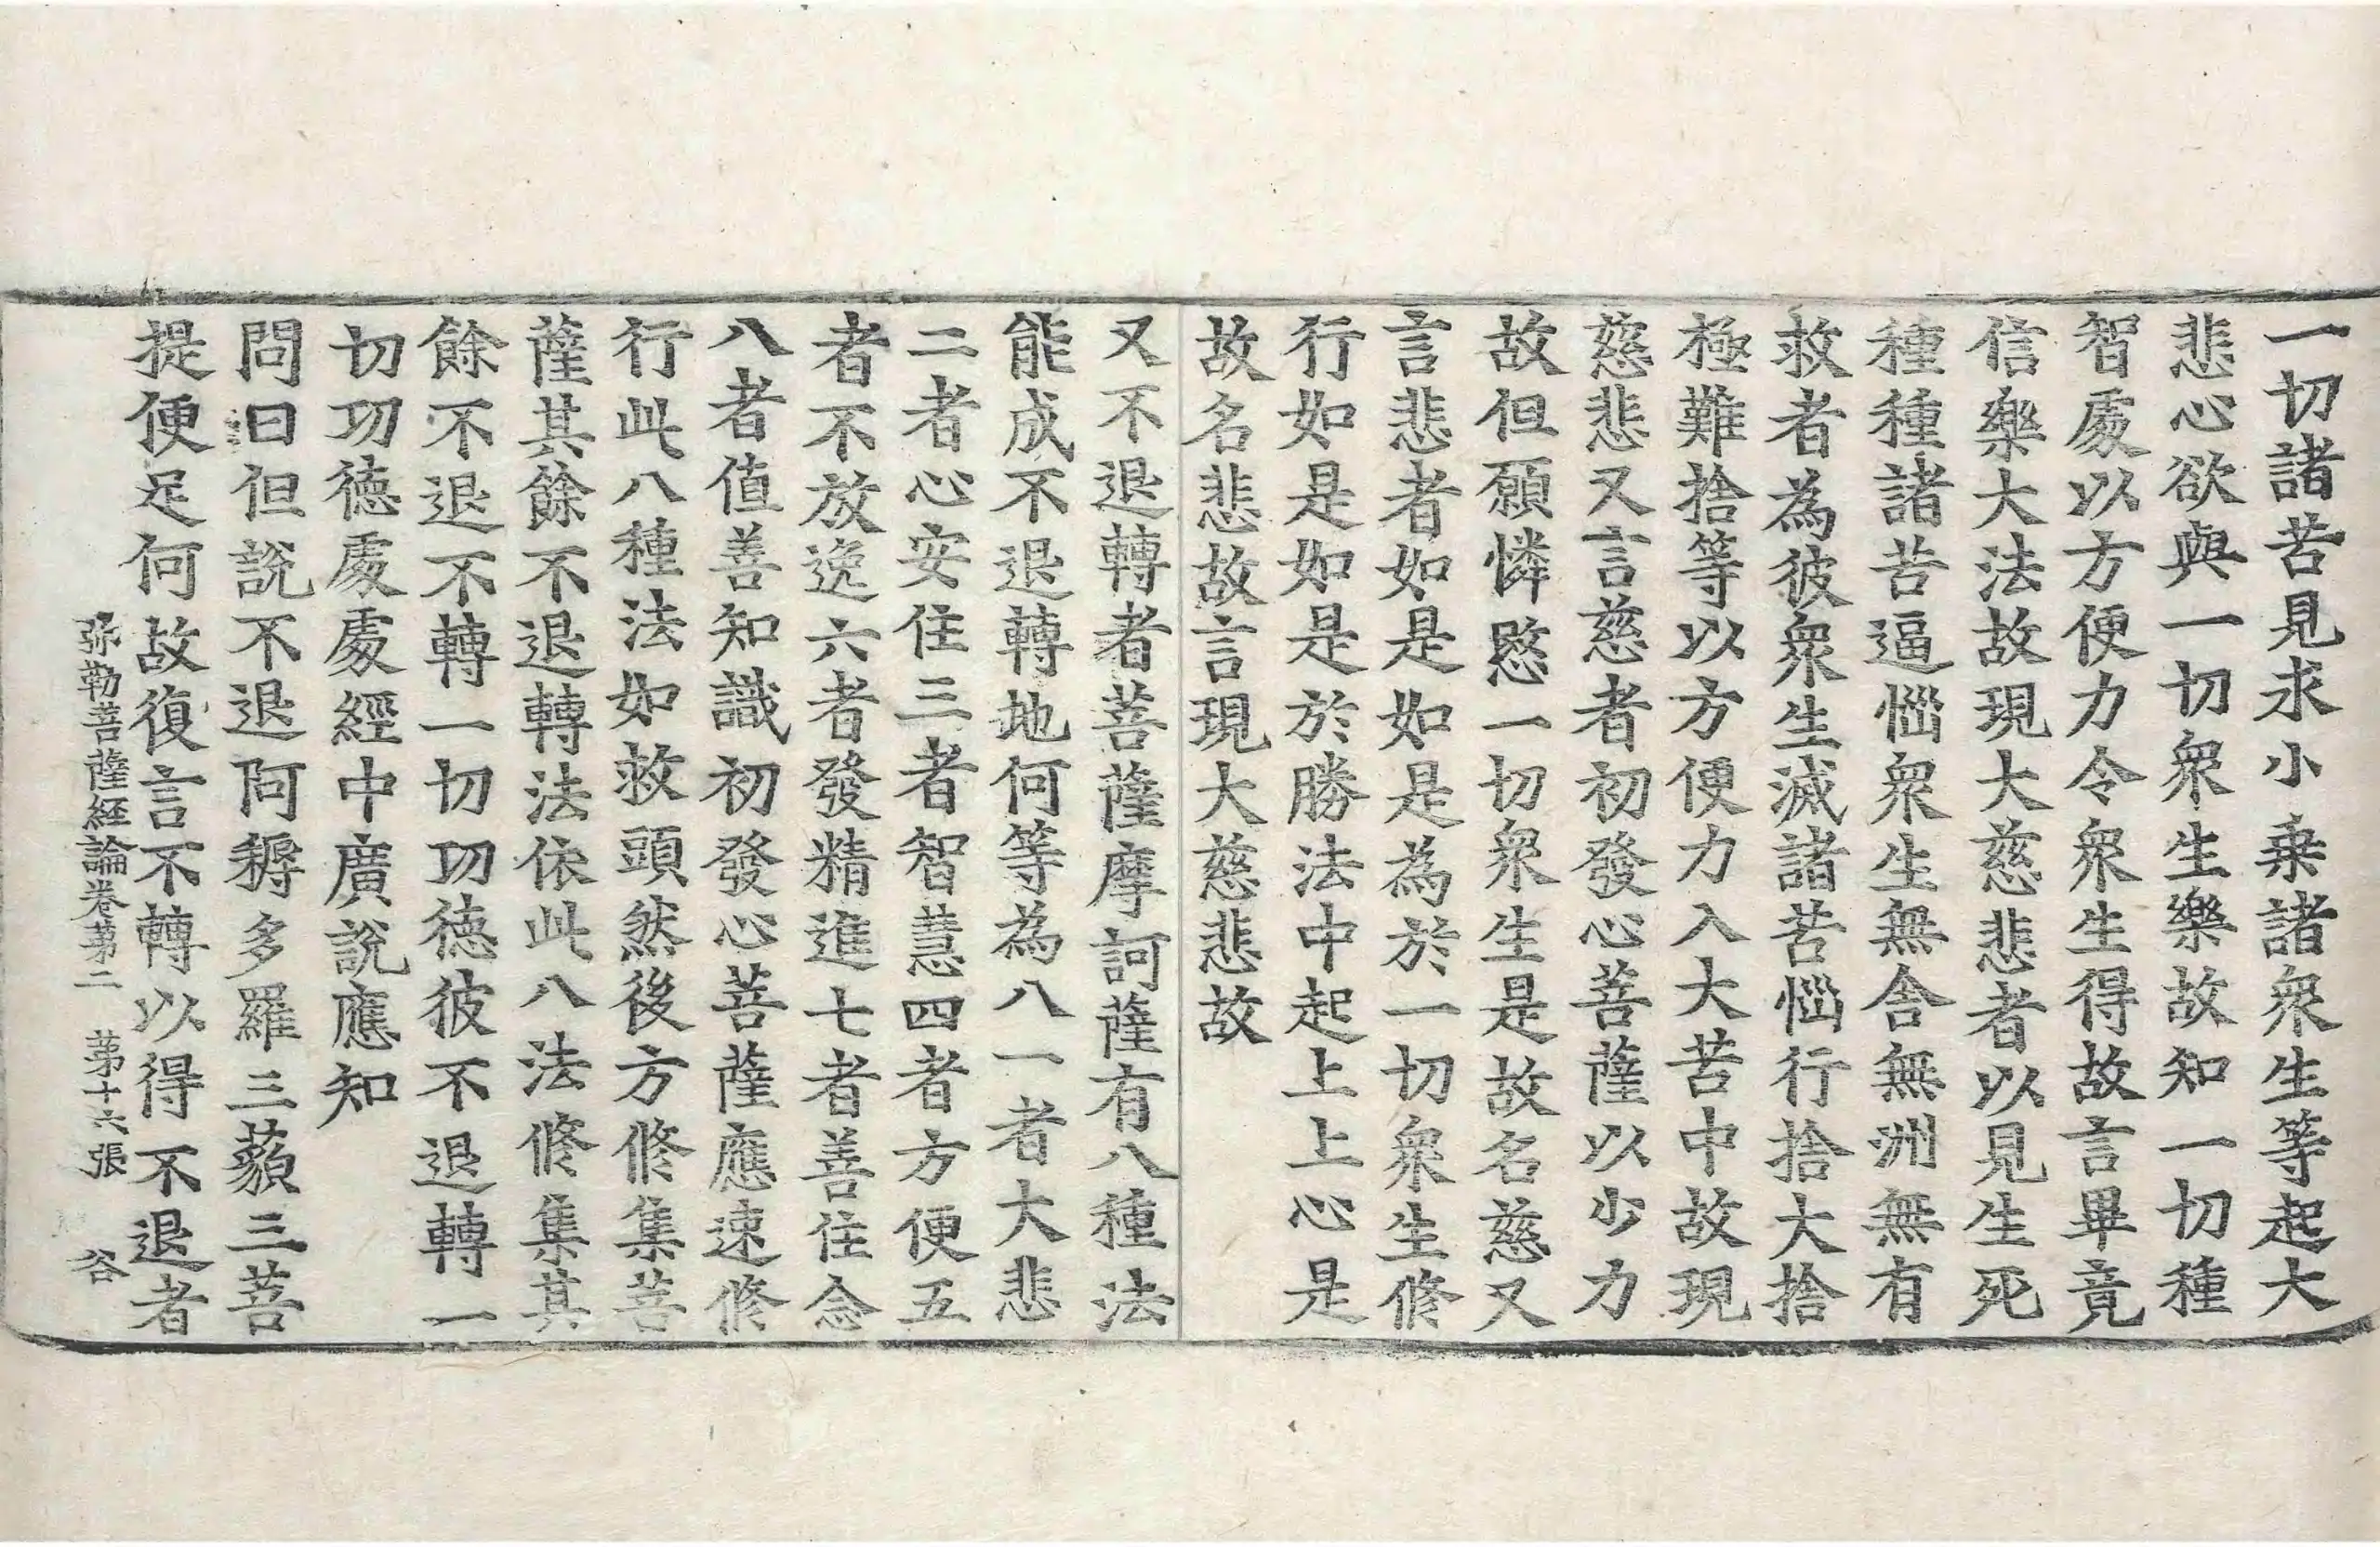 一切諸苦見求小乗諸衆生等起大
悲心欲與一切衆生樂故知一切種
智處以方便力令衆生得故言畢竟
信樂大法故現大慈悲者以見生死
種種諸苦逼惱衆生無舎無洲無有
救者為彼衆生滅諸苦惱行捨大捨
極難捨等以方便力入大苦中故現
慈悲又言慈者初發心菩薩以少力
故但願憐愍一切衆生是故名慈又
言悲者如是如是為於一切衆生修
行如是如是於勝法中起上上心是
故名悲故言現大慈悲故
又不退轉者菩薩摩訶薩有八種法
能成不退轉地何等為八一者大悲
二者心安住三者智慧四者方便五
者不放逸六者發精進七者善住念
八者值善知識初發心菩薩應速修
行此八種法如救頭然後方修集菩
薩其餘不退轉法依此八法修集其
餘不退不轉一切功德彼不退轉一
切功德處處經中廣說應知
問曰但說不退阿耨多羅三藐三菩
提便足何故復言不轉以得不退者
弥勒菩薩経論卷苐二 苐十六張 谷